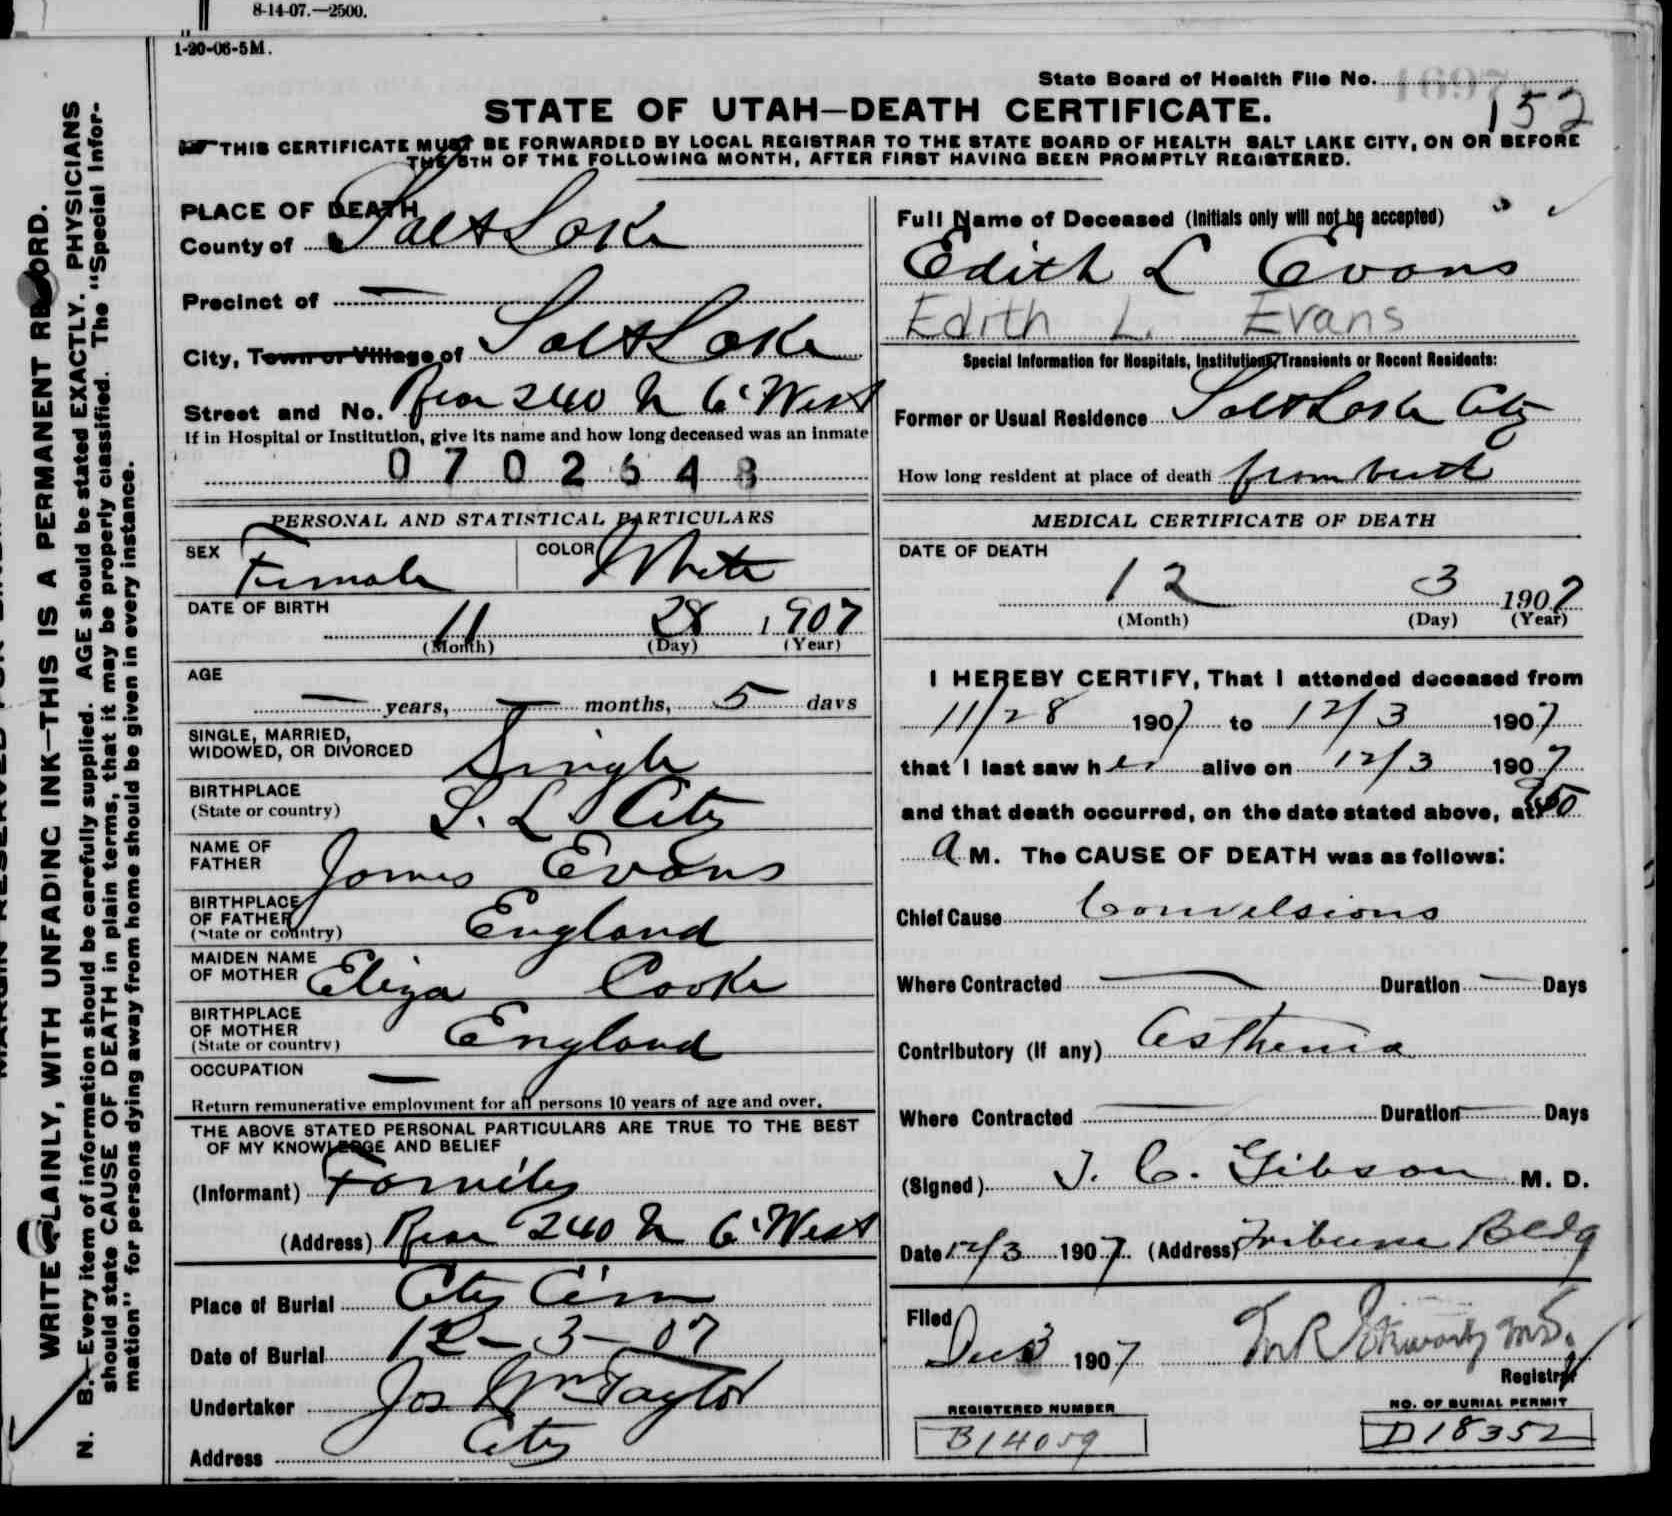 8-14-07.—2500.
1-20-06-5M.
State Board of Health File No. 1697
152
STATE OF UTAH—DEATH CERTIFICATE.
THIS CERTIFICATE MUST BE FORWARDED BY LOCAL REGISTRAR TO THE STATE BOARD OF HEALTH SALT LAKE CITY, ON OR BEFORE
THE 5TH OF THE FOLLOWING MONTH, AFTER FIRST HAVING BEEN PROMPTLY REGISTERED.
WRITE PLAINLY, WITH UNFADING INK—THIS IS A PERMANENT RECORD.
N. B.—Every item of information should be carefully supplied. AGE should be stated EXACTLY. PHYSICIANS
should state CAUSE OF DEATH in plain terms, that it may be properly classified. The "Special Infor-
mation" for persons dying away from home should be given in every instance.
PLACE OF DEATH
County of Salt Lake
Precinct of —
City, Town or Village of Salt Lake
Street and No. Rear 240 N 6' West
If in Hospital or Institution, give its name and how long deceased was an inmate
0702648
PERSONAL AND STATISTICAL PARTICULARS
SEX Female COLOR White
DATE OF BIRTH 11 28 1907
(Month) (Day) (Year)
AGE
— years, — months, 5 days
SINGLE, MARRIED,
WIDOWED, OR DIVORCED Single
BIRTHPLACE
(State or country) S. L. City
NAME OF
FATHER James Evans
BIRTHPLACE
OF FATHER
(State or country) England
MAIDEN NAME
OF MOTHER Eliza Cooke
BIRTHPLACE
OF MOTHER
(State or country) England
OCCUPATION —
Return remunerative employment for all persons 10 years of age and over.
THE ABOVE STATED PERSONAL PARTICULARS ARE TRUE TO THE BEST
OF MY KNOWLEDGE AND BELIEF
(Informant) Family
(Address) Rear 240 N 6' West
Place of Burial City Cem
Date of Burial 12-3-07
Undertaker Jos Wm Taylor
Address City
Full Name of Deceased (Initials only will not be accepted)
Edith L Evans
Edith L. Evans
Special Information for Hospitals, Institutions, Transients or Recent Residents:
Former or Usual Residence Salt Lake City
How long resident at place of death from birth
MEDICAL CERTIFICATE OF DEATH
DATE OF DEATH
12 3 1907
(Month) (Day) (Year)
I HEREBY CERTIFY, That I attended deceased from
11/28 1907 to 12/3 1907
that I last saw her alive on 12/3 1907
and that death occurred, on the date stated above, at
a M. The CAUSE OF DEATH was as follows:
Chief Cause Convulsions
Where Contracted — Duration — Days
Contributory (if any) Asthenia
Where Contracted — Duration — Days
(Signed) J. C. Gibson M. D.
Date 12/3 1907 (Address) Tribune Bldg
Filed
Dec 3 1907
Registrar
REGISTERED NUMBER
B14059
NO. OF BURIAL PERMIT
D18352